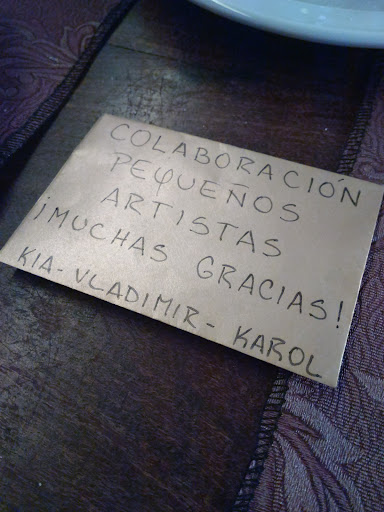 COLABORACIÓN
PEQUEÑOS
ARTISTAS
¡MUCHAS GRACIAS!
KIA - VLADIMIR - KAROL